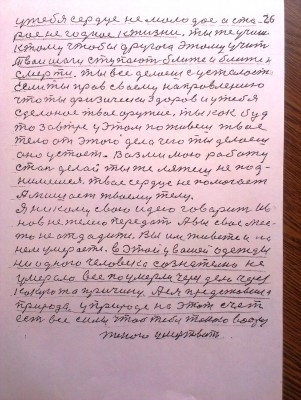 у тебя сердце не молодое и ста- 26
рое не годное к жизни. ты же учиш
к тому чтобы другой этому учит
Твои шаги ступают ближе и ближе к
смерти. ты все делаеш с усталостью
если ты прав своему направлению
что ты физически здоров и у тебя
сделоное твое оружие, ты как буд
то завтре у этом поживеш твое
тело от этого дела чего ты делаеш
оно устает. Возьми мою работу
стан делай ты же ляжеш не под-
нимешся. твое сердце не помогает
А мишает твоему телу.
Я никому свою идею говорит Ив
нов не могу передать А вы свае мес-
то не отдадите. Вы им живете и на
нем умераете. в этой у вашей одежды
ни одного человека сознательно не
умерало все поумерли чуж дем через
какую то причину. Для представления
природа у природе на этот счет
ест все силы чтоб тебя такого
такого